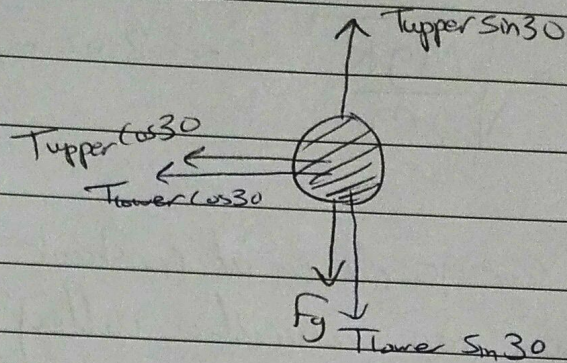 Tupper Sin30
Tupper Cos30
Tlower Cos30
Fg
Tlower Sin 30